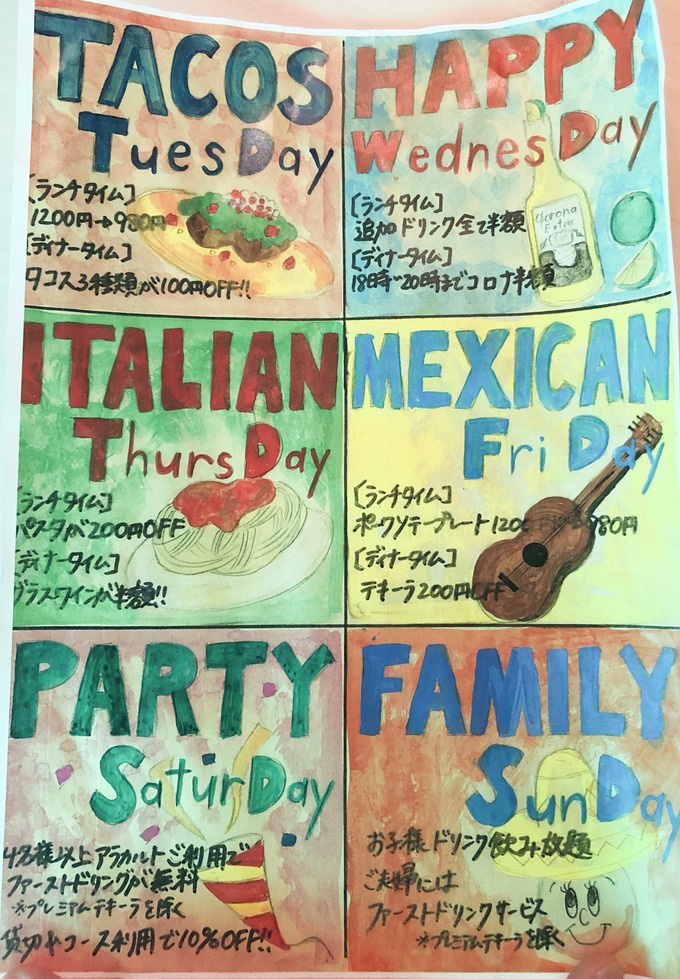 TACOS
TuesDay
[ランチタイム]
1200円→980円
[ディナータイム]
タコス3種類が100円OFF!!
HAPPY
WednesDay
[ランチタイム]
追加ドリンク全て半額
[ディナータイム]
18時~20時までコロナ半額
Corona
Extra
ITALIAN
ThursDay
[ランチタイム]
パスタが200円OFF
[ディナータイム]
グラスワインが半額!!
MEXICAN
FriDay
[ランチタイム]
ポークソテープレート1200円→980円
[ディナータイム]
テキーラ200円OFF
PARTY
SaturDay
4名様以上アラカルトご利用で
ファーストドリングが無料
※プレミアムテキーラを除く
貸切やコース利用で10%OFF!!
FAMILY
SunDay
お子様ドリンク飲み放題
ご夫婦には
ファーストドリンクサービス
※プレミアムテキーラを除く